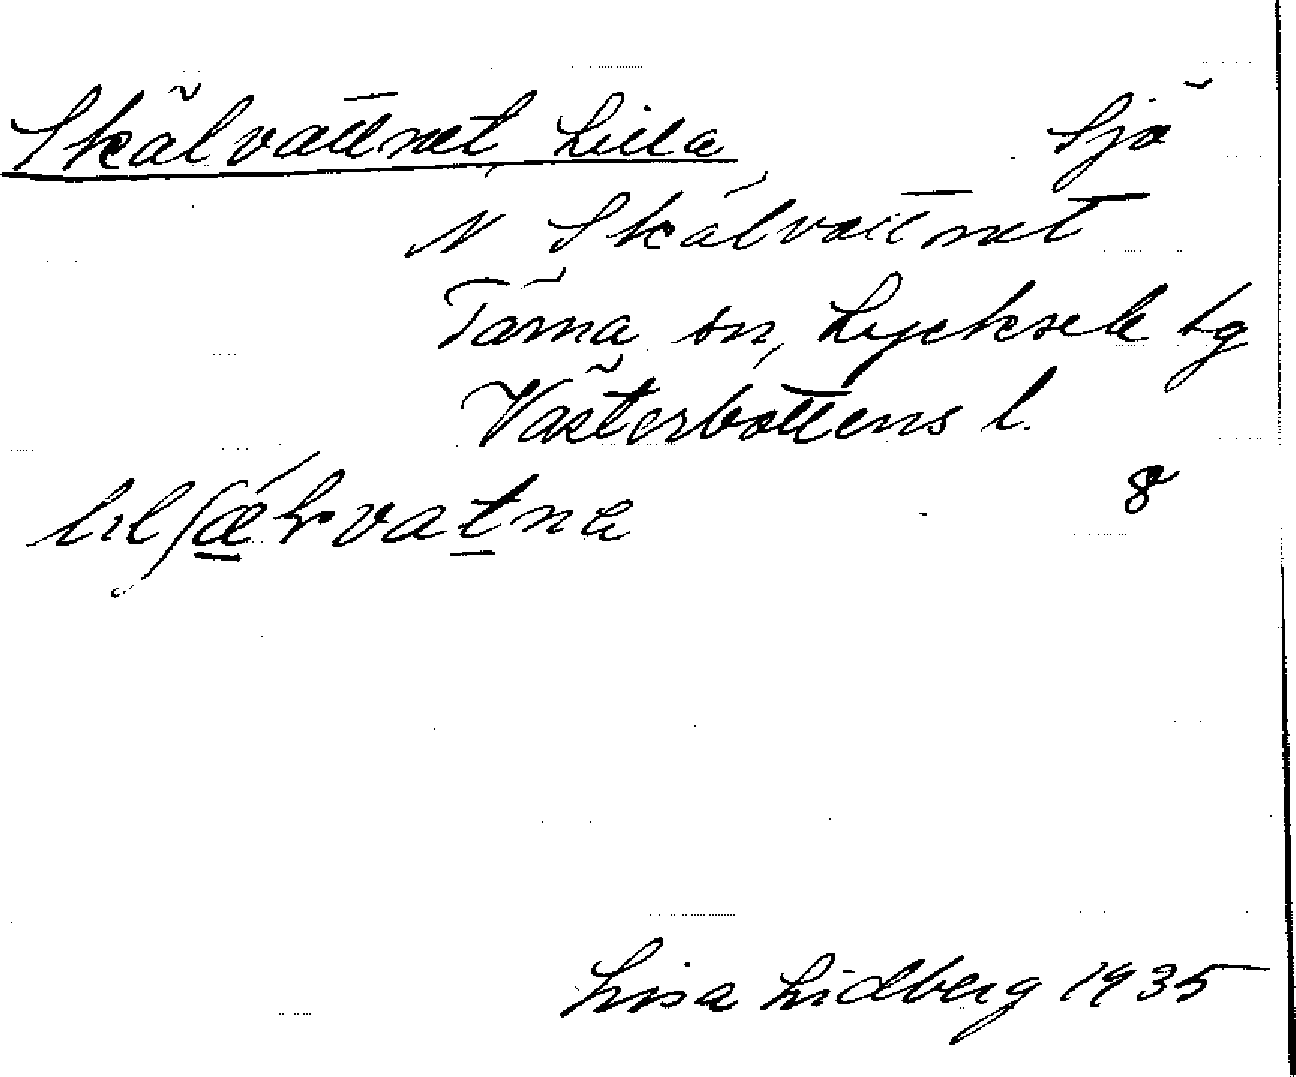 Skälvattnet, Lilla Sjö
N Skälvattnet
Tärna sn, Lycksele lg
Västerbottens l.
8
Lisa Lidberg 1935